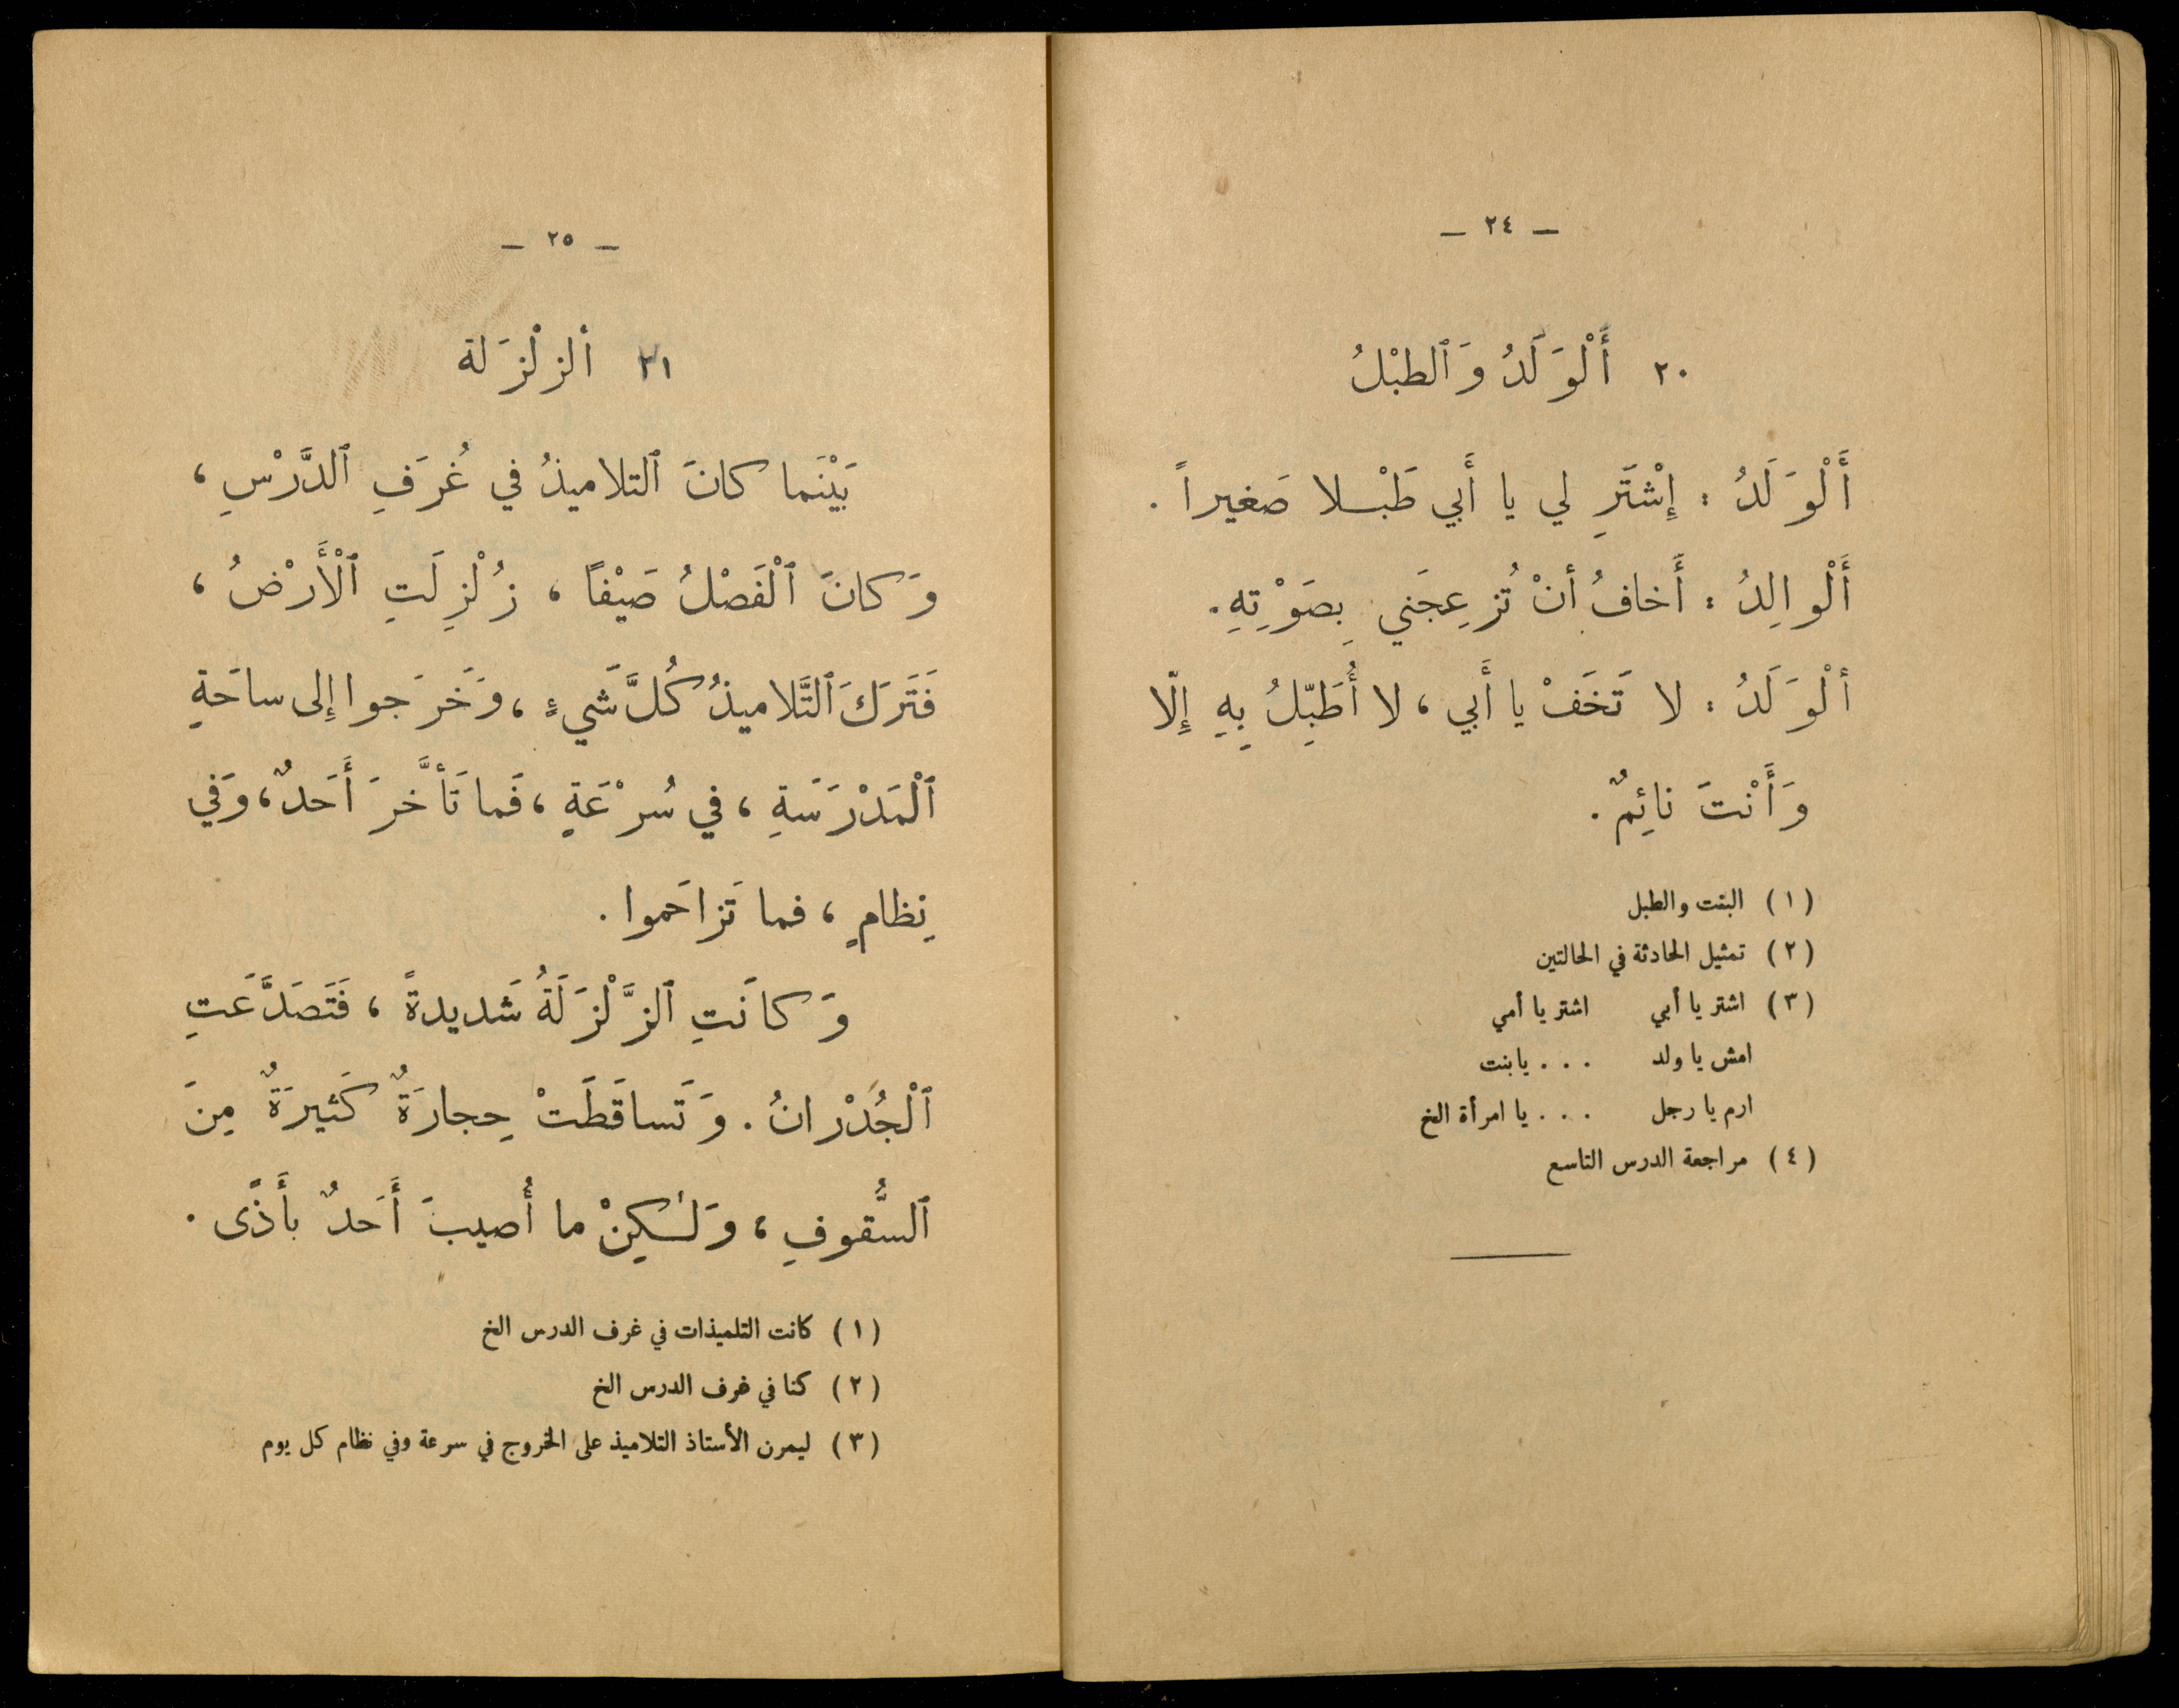 — ٢٤ —
٢٠ أَلْوَلَدُ وَٱلطبْلُ
أَلْوَلَدُ : إِشْتَرِ لي يا أَبي طَبْلا صَغيراً .
أَلْوالِدُ : أَخافُ أنْ تُزعِجَني بِصَوْتِهِ .
ألْوَلَدُ : لا تَخَفْ يا أَبي ، لا أُطَبِّلُ بِهِ إِلّا
وَأَنْتَ نائِمٌ .
(١) البنت والطبل
(٢) تمثيل الحادثة في الحالتين
(٣) اشتر يا أبي اشتر يا أمي
امش يا ولد . . . يا بنت
ارم يا رجل . . . يا امرأة الخ
(٤) مراجعة الدرس التاسع
— ٢٥ —
٢١ ألزلْزَلة
بَيْنَما كانَ ٱلتلاميذُ في غُرَفِ ٱلدَّرْسِ ،
وَكانَ ٱلْفَصْلُ صَيْفًا ، زُلْزِلَتِ ٱلْأَرْضُ ،
فَتَرَكَ ٱلتَّلاميذُ كُلَّ شَيءٍ ، وَخَرَجوا إِلى ساحَةِ
ٱلْمَدْرَسَةِ ، في سُرْعَةٍ ، فَما تَأَخَّرَ أَحَدٌ ، وَفي
نِظامٍ ، فما تَزاحَموا .
وَكانَتِ ٱلزَّلْزَلَةُ شَديدةً ، فَتَصَدَّعَتِ
ٱلْجُدْرانُ . وَتَساقَطَتْ حِجارَةٌ كَثيرَةٌ مِنَ
ٱلسُّقوفِ ، وَلٰكِنْ ما أُصيبَ أَحَدٌ بأَذًى .
(١) كانت التلميذات في غرف الدرس الخ
(٢) كنا في غرف الدرس الخ
(٣) ليمرن الأستاذ التلاميذ على الخروج في سرعة وفي نظام كل يوم